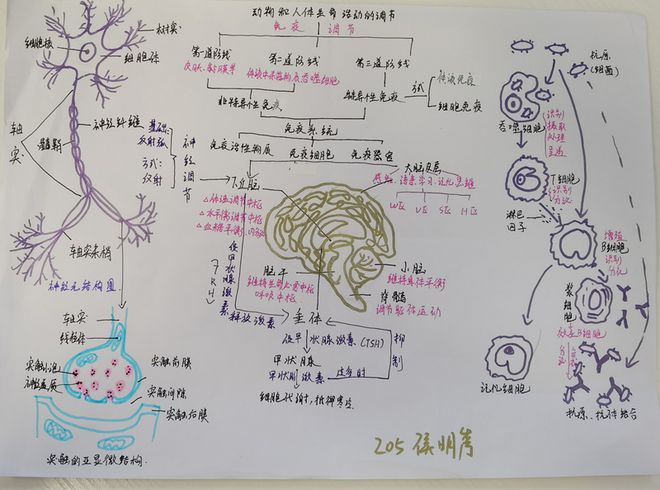 动物和人体生命活动的调节
免疫 调节
第一道防线
皮肤、黏膜等
第二道防线
第三道防线
非特异性免疫
特异性免疫
方式
体液免疫
细胞免疫
免疫系统
免疫活性物质
免疫细胞
免疫器官
树突
细胞核
细胞体
轴突
髓鞘
神经纤维
轴突末梢
神经元结构图
基础:
反射弧
方式:
反射
神经调节
下丘脑
△体温调节中枢
△水平衡调节中枢
△血糖平衡
大脑皮层
语言、学习、记忆、思维
W区
V区
S区
H区
脑干
呼吸中枢
小脑
维持身体平衡
脊髓
调节躯体运动
促甲状腺激素
释放激素
TRH
垂体
促甲状腺激素(TSH)
甲状腺
甲状腺激素
过多时
抑制
细胞代谢↑,抵御寒冷
轴突
线粒体
突触小泡
神经递质
突触前膜
突触间隙
突触后膜
突触的亚显微结构
抗原
(细菌)
吞噬细胞
识别
摄取
处理
呈递
T细胞
识别
分泌
淋巴
因子
增殖
B细胞
识别
分化
浆细胞
效应B细胞
分泌
抗体
记忆细胞
抗原、抗体结合
205